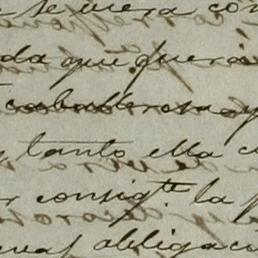 se viera con
da que querá
caballerosa y
tanto ella c
r consigte la p
obligaci